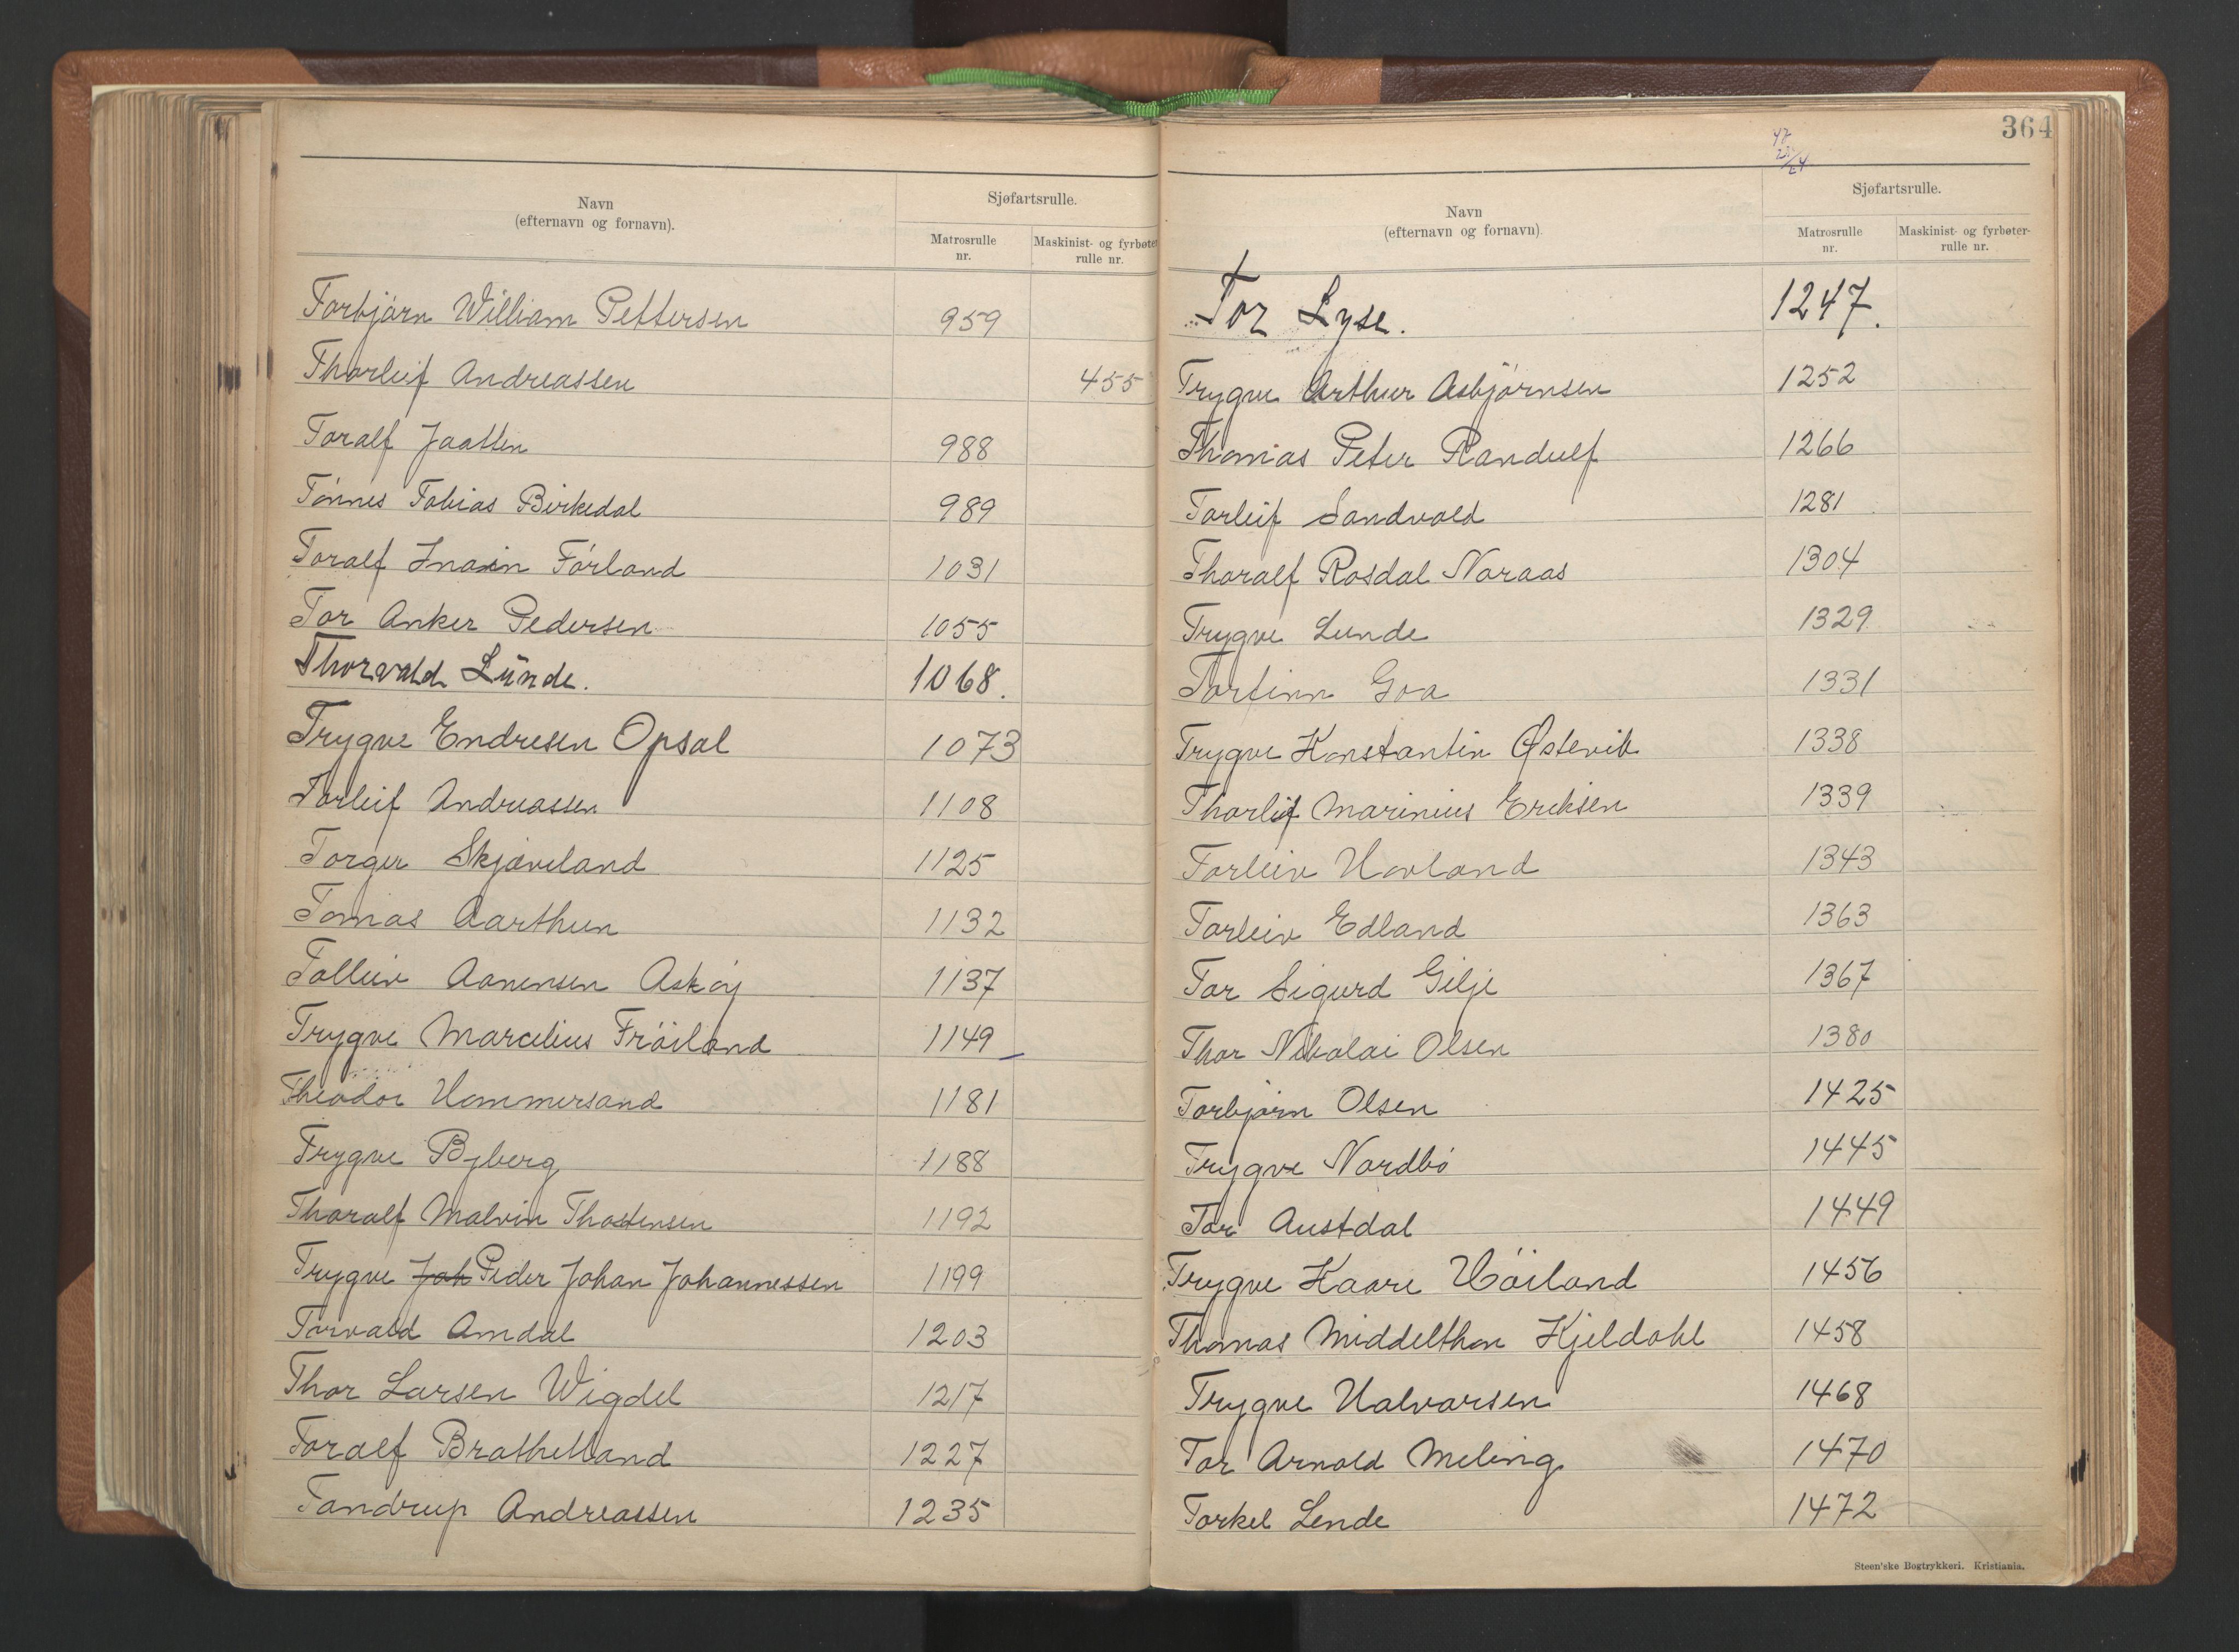 Navn
(efternavn og fornavn).
Sjøfartsrulle.
Matrosrulle
nr.
Maskinist- og fyrbøter
rulle nr.
Torbjørn William Pettersen 959
Thorleif Andreassen 455
Toralf Jaatten 988
Tønnes Tobias Birkedal 989
Toralf Førland 1031
Tor Anker Pedersen 1055
Thorvald Lunde. 1068.
Trygve Endresen Opsal 1073
Torleif Andreassen 1108
Torger Skjæveland 1125
Tomas Aarthun 1132
Tolleiv Aanensen Askøy 1137
Trygve Marcelius Frøiland 1149
Theodor Hommersand 1181
Trygve Byberg 1188
Tharalf Malvin Thostensen 1192
Trygve Joh Peder Johan Johannessen 1199
Torvald Amdal 1203
Thor Larsen Wigdel 1217
Toralf Brathetland 1227
Tandrup Andreassen 1235
364
Navn
(efternavn og fornavn).
Sjøfartsrulle.
Matrosrulle
nr.
Maskinist- og fyrbøter-
rulle nr.
Tor Lyse. 1247.
Trygve Arthur Asbjørnsen 1252
Thomas Peter Randulf 1266
Torleif Sandvold 1281
Tharalf Rosdal Noraas 1304
Trygve Lunde 1329
Torfinn Goa 1331
Trygve Konstantin Østevik 1338
Thorleif Marinius Eriksen 1339
Torleiv Hovland 1343
Torleiv Edland 1363
Tor Sigurd Gilje 1367
Thor Nikolai Olsen 1380
Torbjørn Olsen 1425
Trygve Nordbø 1445
Tor Austdal 1449
Trygve Kaare Høiland 1456
Thomas Middelthon Kjeldahl 1458
Trygve Halvorsen 1468
Tor Arnold Meling 1470
Torkel Lende 1472
Steen'ske Bogtrykkeri. Kristiania.